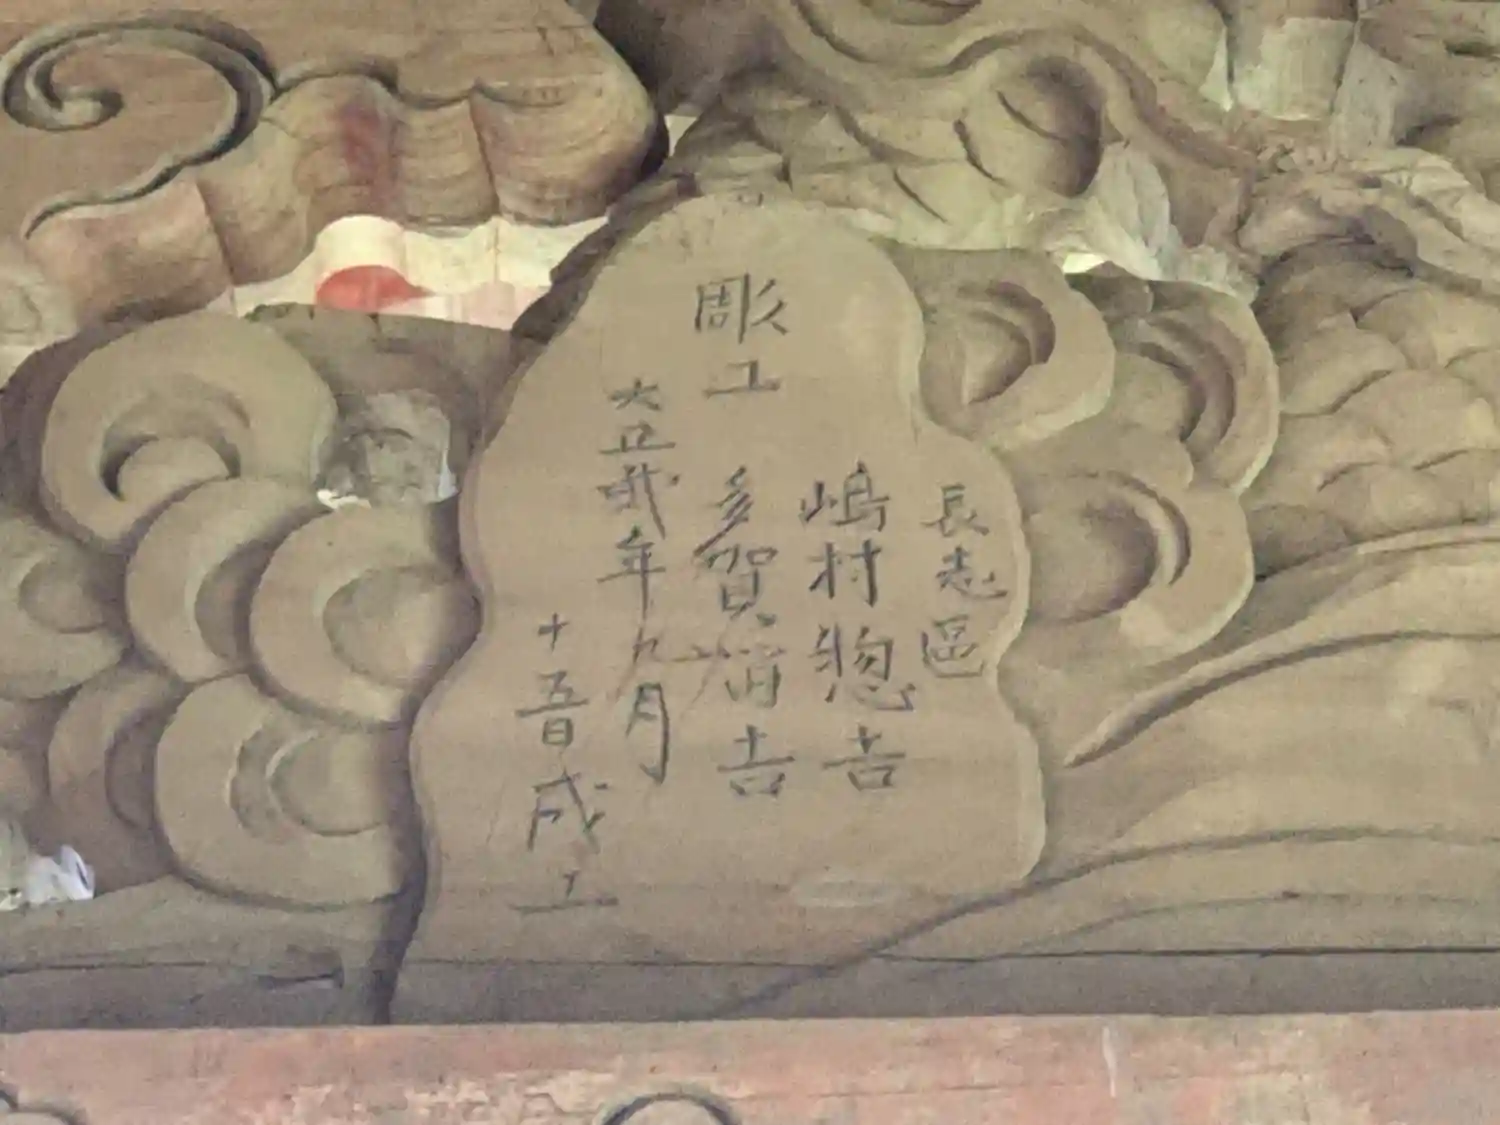 彫工
長志區
嶋村惣吉
多賀吉
大正弐年九月
十五日成工